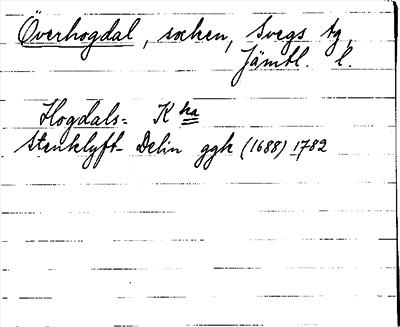 Överhogdal, socken, Svegs tg,
Jämtl. l.
Hogdals= K ha
Stenklyft- Delin ggk (1688) 1782